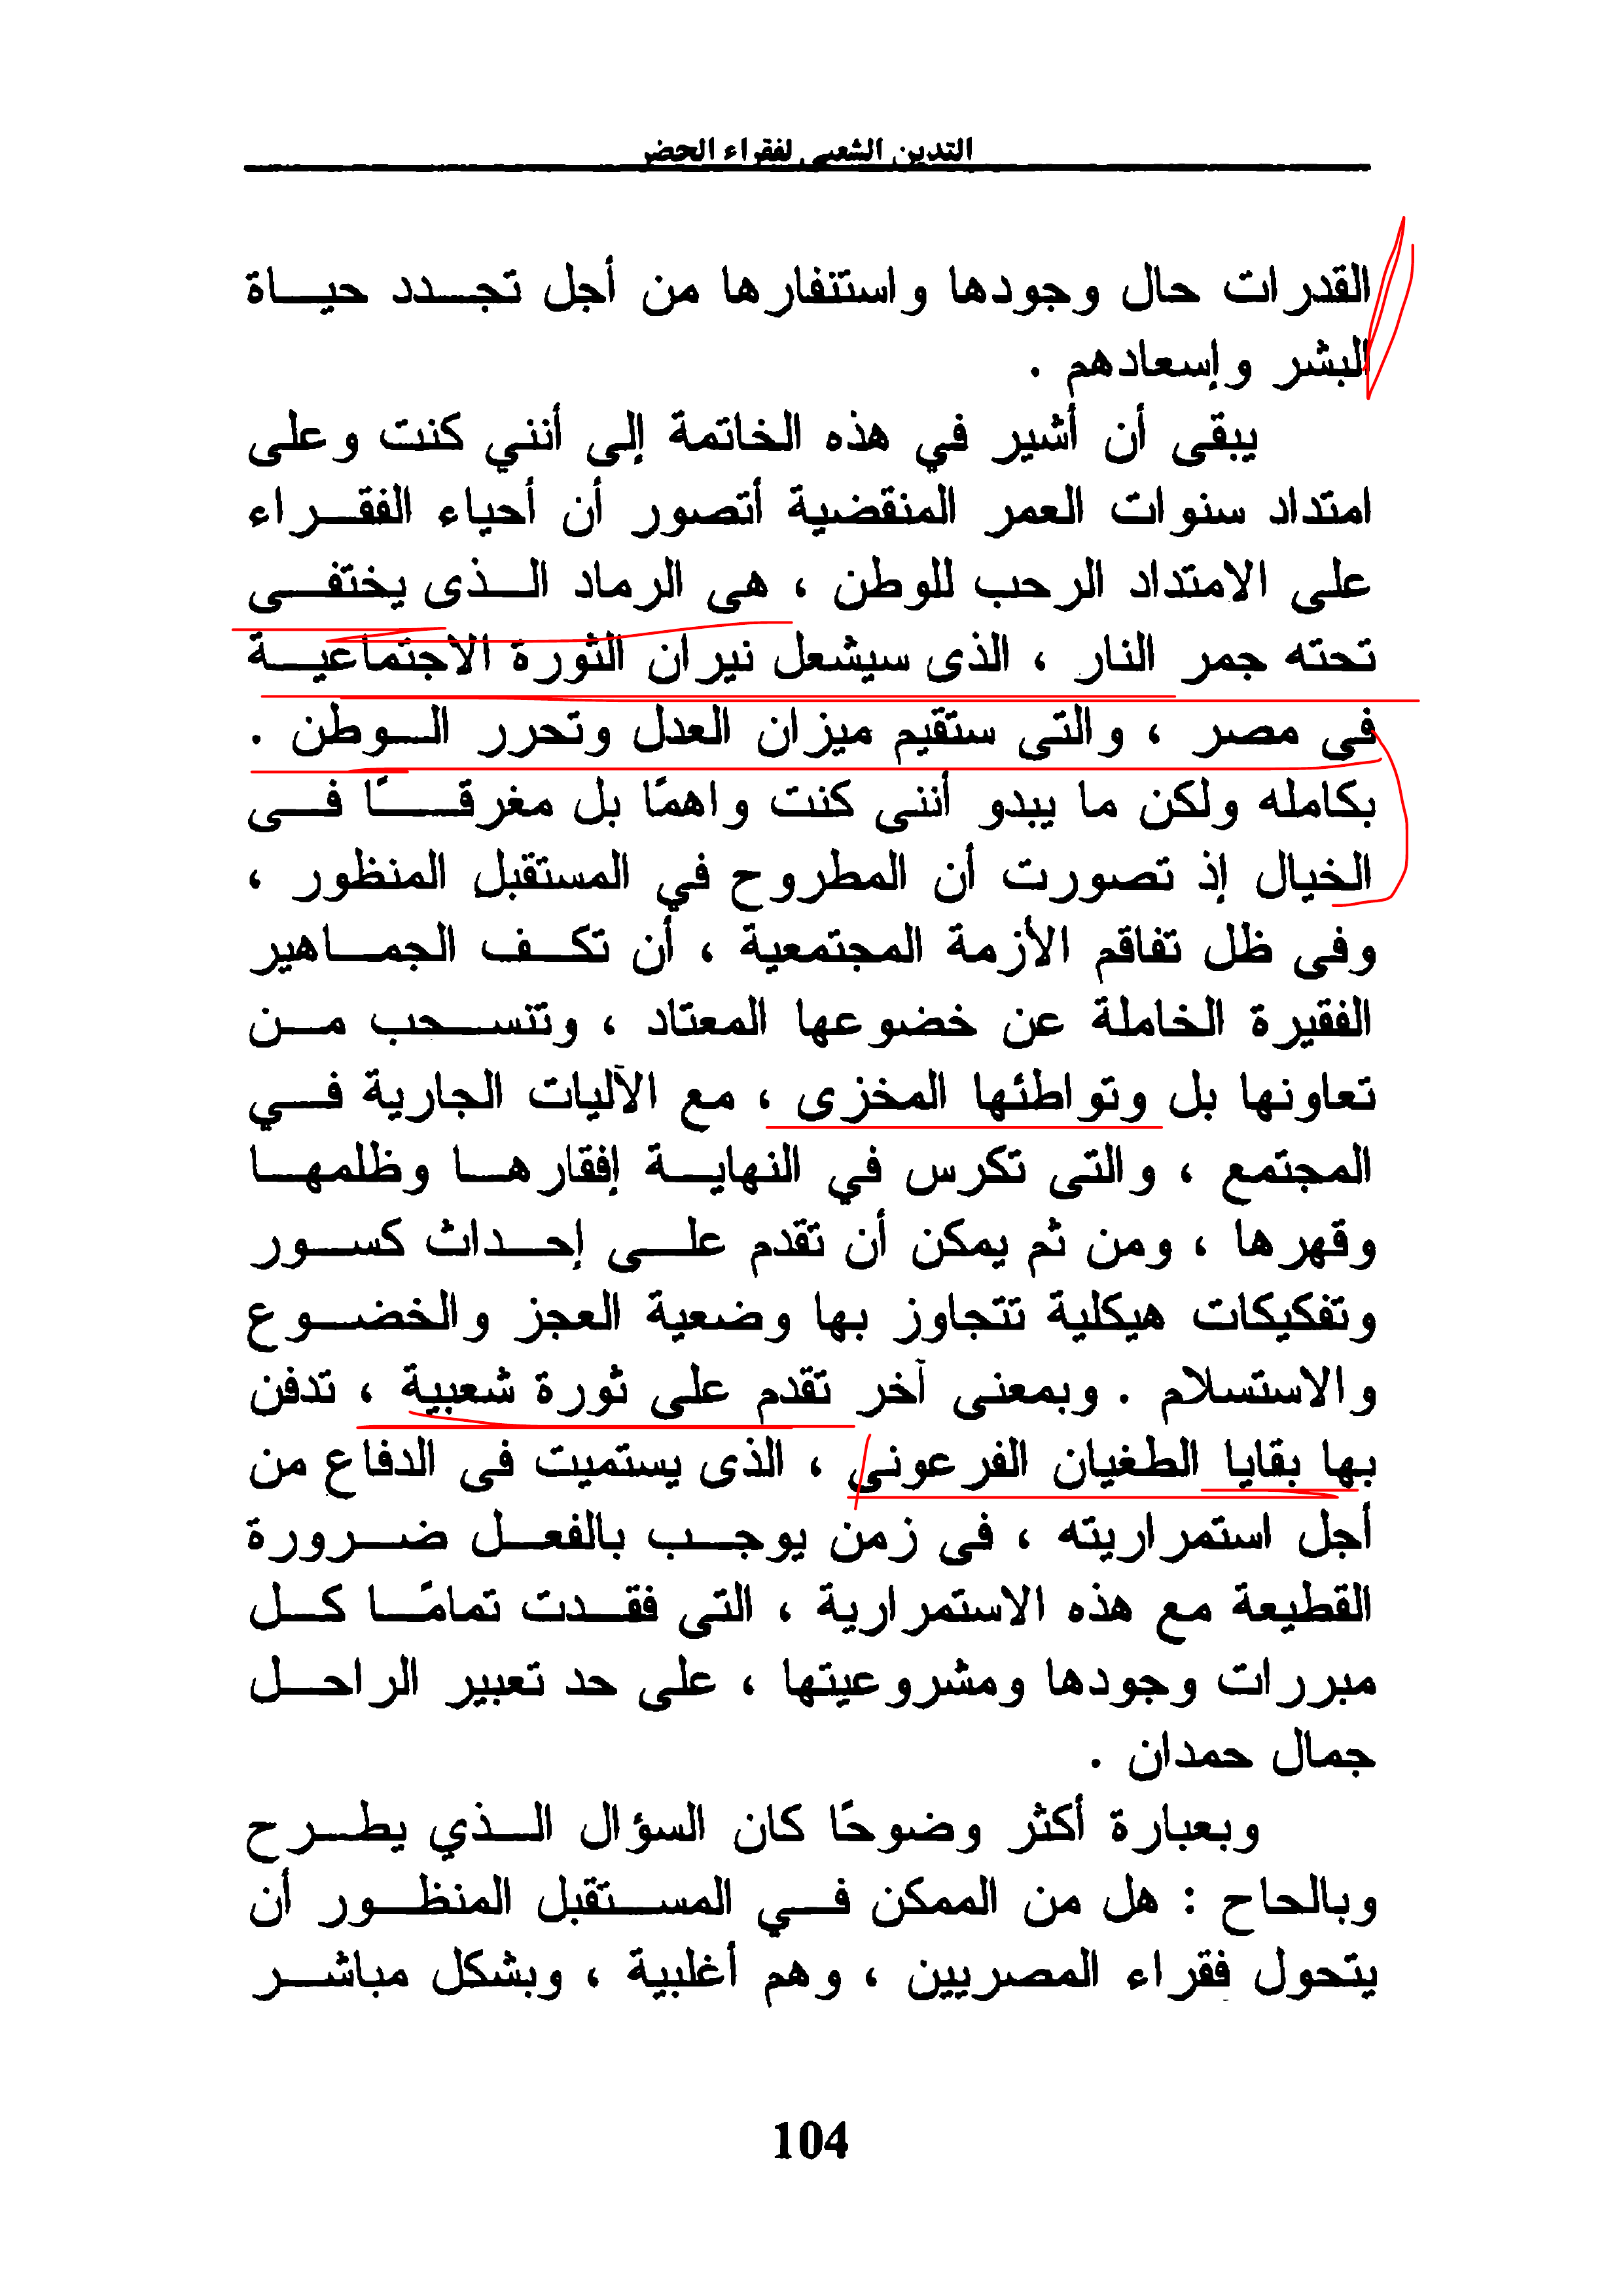 التدين الشعبي لفقراء الحضر
القدرات حال وجودها واستنفارها من أجل تجدد حياة
البشر وإسعادهم .
يبقى أن أشير في هذه الخاتمة إلى أنني كنت وعلى
امتداد سنوات العمر المنقضية أتصور أن أحياء الفقراء
على الامتداد الرحب للوطن ، هى الرماد الذى يختفى
تحته جمر النار ، الذى سيشعل نيران الثورة الاجتماعية
فى مصر ، والتى ستقيم ميزان العدل وتحرر الوطن .
بكامله ولكن ما يبدو أننى كنت واهمًا بل مغرقًا فى
الخيال إذ تصورت أن المطروح في المستقبل المنظور ،
وفى ظل تفاقم الأزمة المجتمعية ، أن تكف الجماهير
الفقيرة الخاملة عن خضوعها المعتاد ، وتنسحب من
تعاونها بل وتواطئها المخزى ، مع الآليات الجارية في
المجتمع ، والتى تكرس في النهاية إفقارها وظلمها
وقهرها ، ومن ثم يمكن أن تقدم على إحداث كسور
وتفكيكات هيكلية تتجاوز بها وضعية العجز والخضوع
والاستسلام . وبمعنى آخر تقدم على ثورة شعبية ، تدفن
بها بقايا الطغيان الفرعونى ، الذى يستميت فى الدفاع من
أجل استمراريته ، فى زمن يوجب بالفعل ضرورة
القطيعة مع هذه الاستمرارية ، التى فقدت تمامًا كل
مبررات وجودها ومشروعيتها ، على حد تعبير الراحل
جمال حمدان .
وبعبارة أكثر وضوحًا كان السؤال الذي يطرح
وبالحاح : هل من الممكن في المستقبل المنظور أن
يتحول فقراء المصريين ، وهم أغلبية ، وبشكل مباشر
104